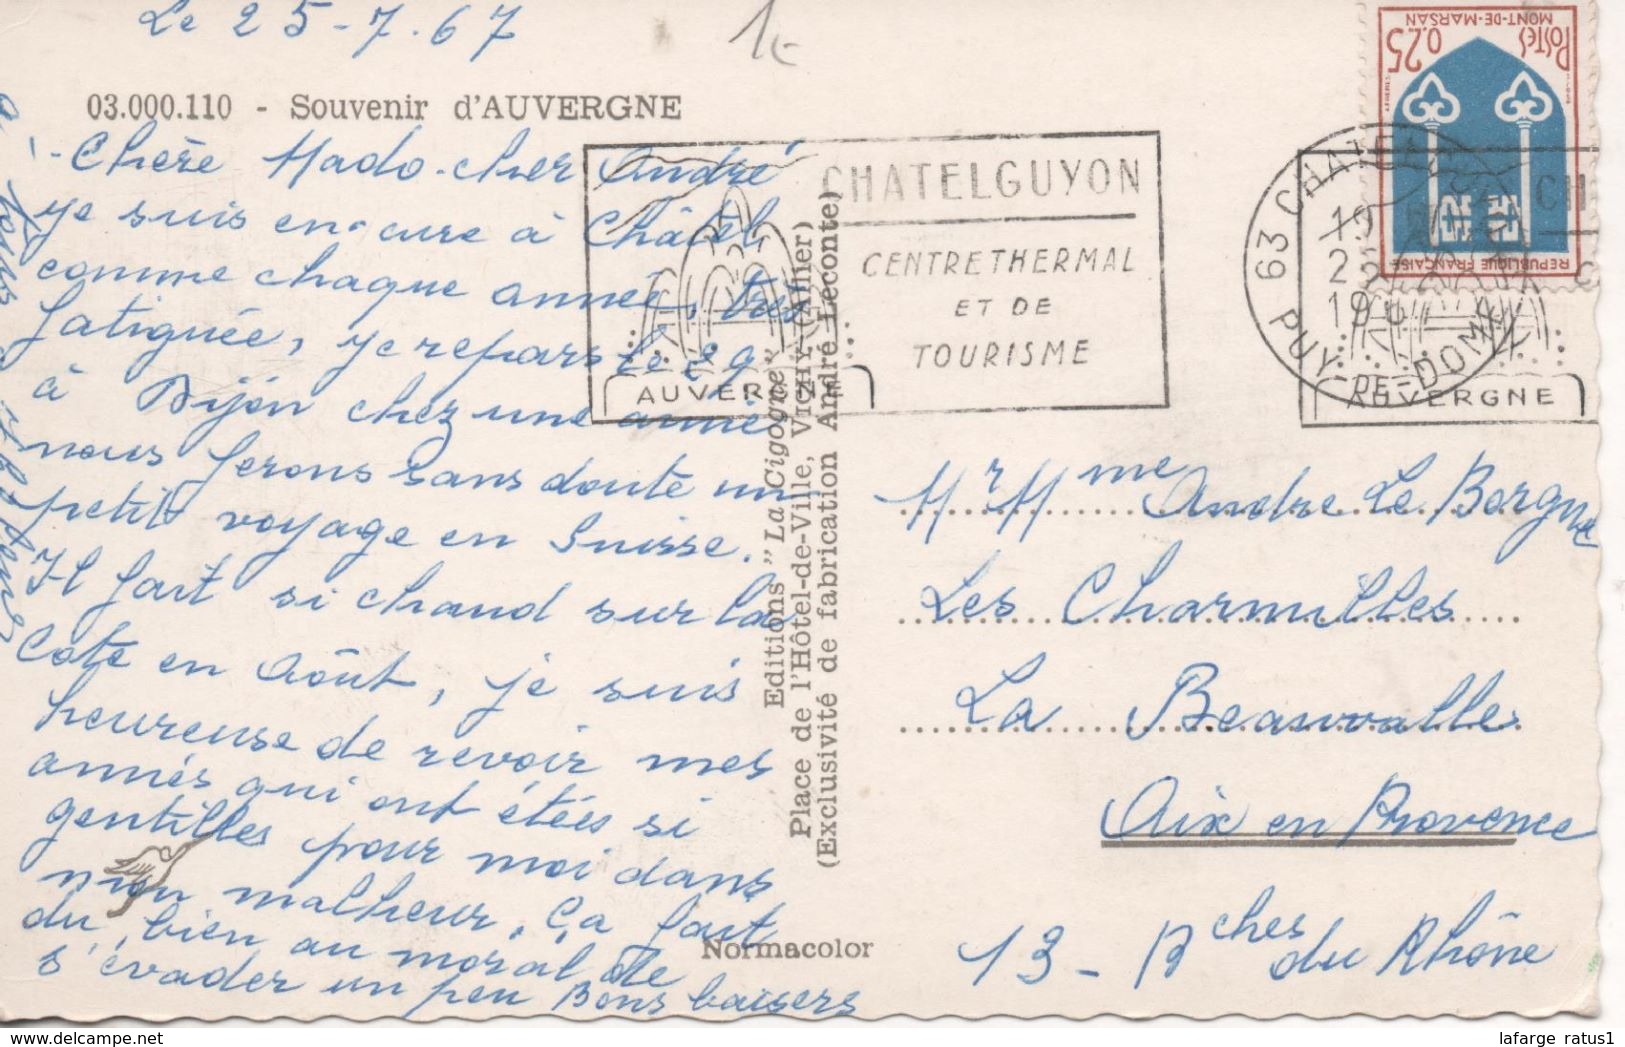 Le 25-7.67
1€
03.000.110 - Souvenir d'AUVERGNE
- Chère Mado - cher André
je suis en cure à Châtel
comme chaque année, très
fatiguée, je repars le 29
à Dijon chez une amie
nous ferons sans doute un
petit voyage en Suisse.
Il fait si chaud sur la
Cote en Août, je suis
heureuse de revoir mes
amiés qui ont étées si
gentilles pour moi dans
mon malheur. ça fait
du bien au moral de
s'évader un peu Bons baisers
à
Editions "La Cigogne"
Place de l'Hôtel-de-Ville, VICHY (Allier)
(Exclusivité de fabrication André Leconte)
Normacolor
CHATELGUYON
CENTRE THERMAL
ET DE
TOURISME
AUVERGNE
63 CHATEL
PUY-DE-DOME
19
2
19
CH
C
AUVERGNE
POSTES
0,25
MONT-DE-MARSAN
REPUBLIQUE FRANÇAISE
Mr Mme Andre Le Borgne
Les Charmilles
La Beauvalle
Aix en Provence
13 - Bches du Rhône
lafarge_ratus1